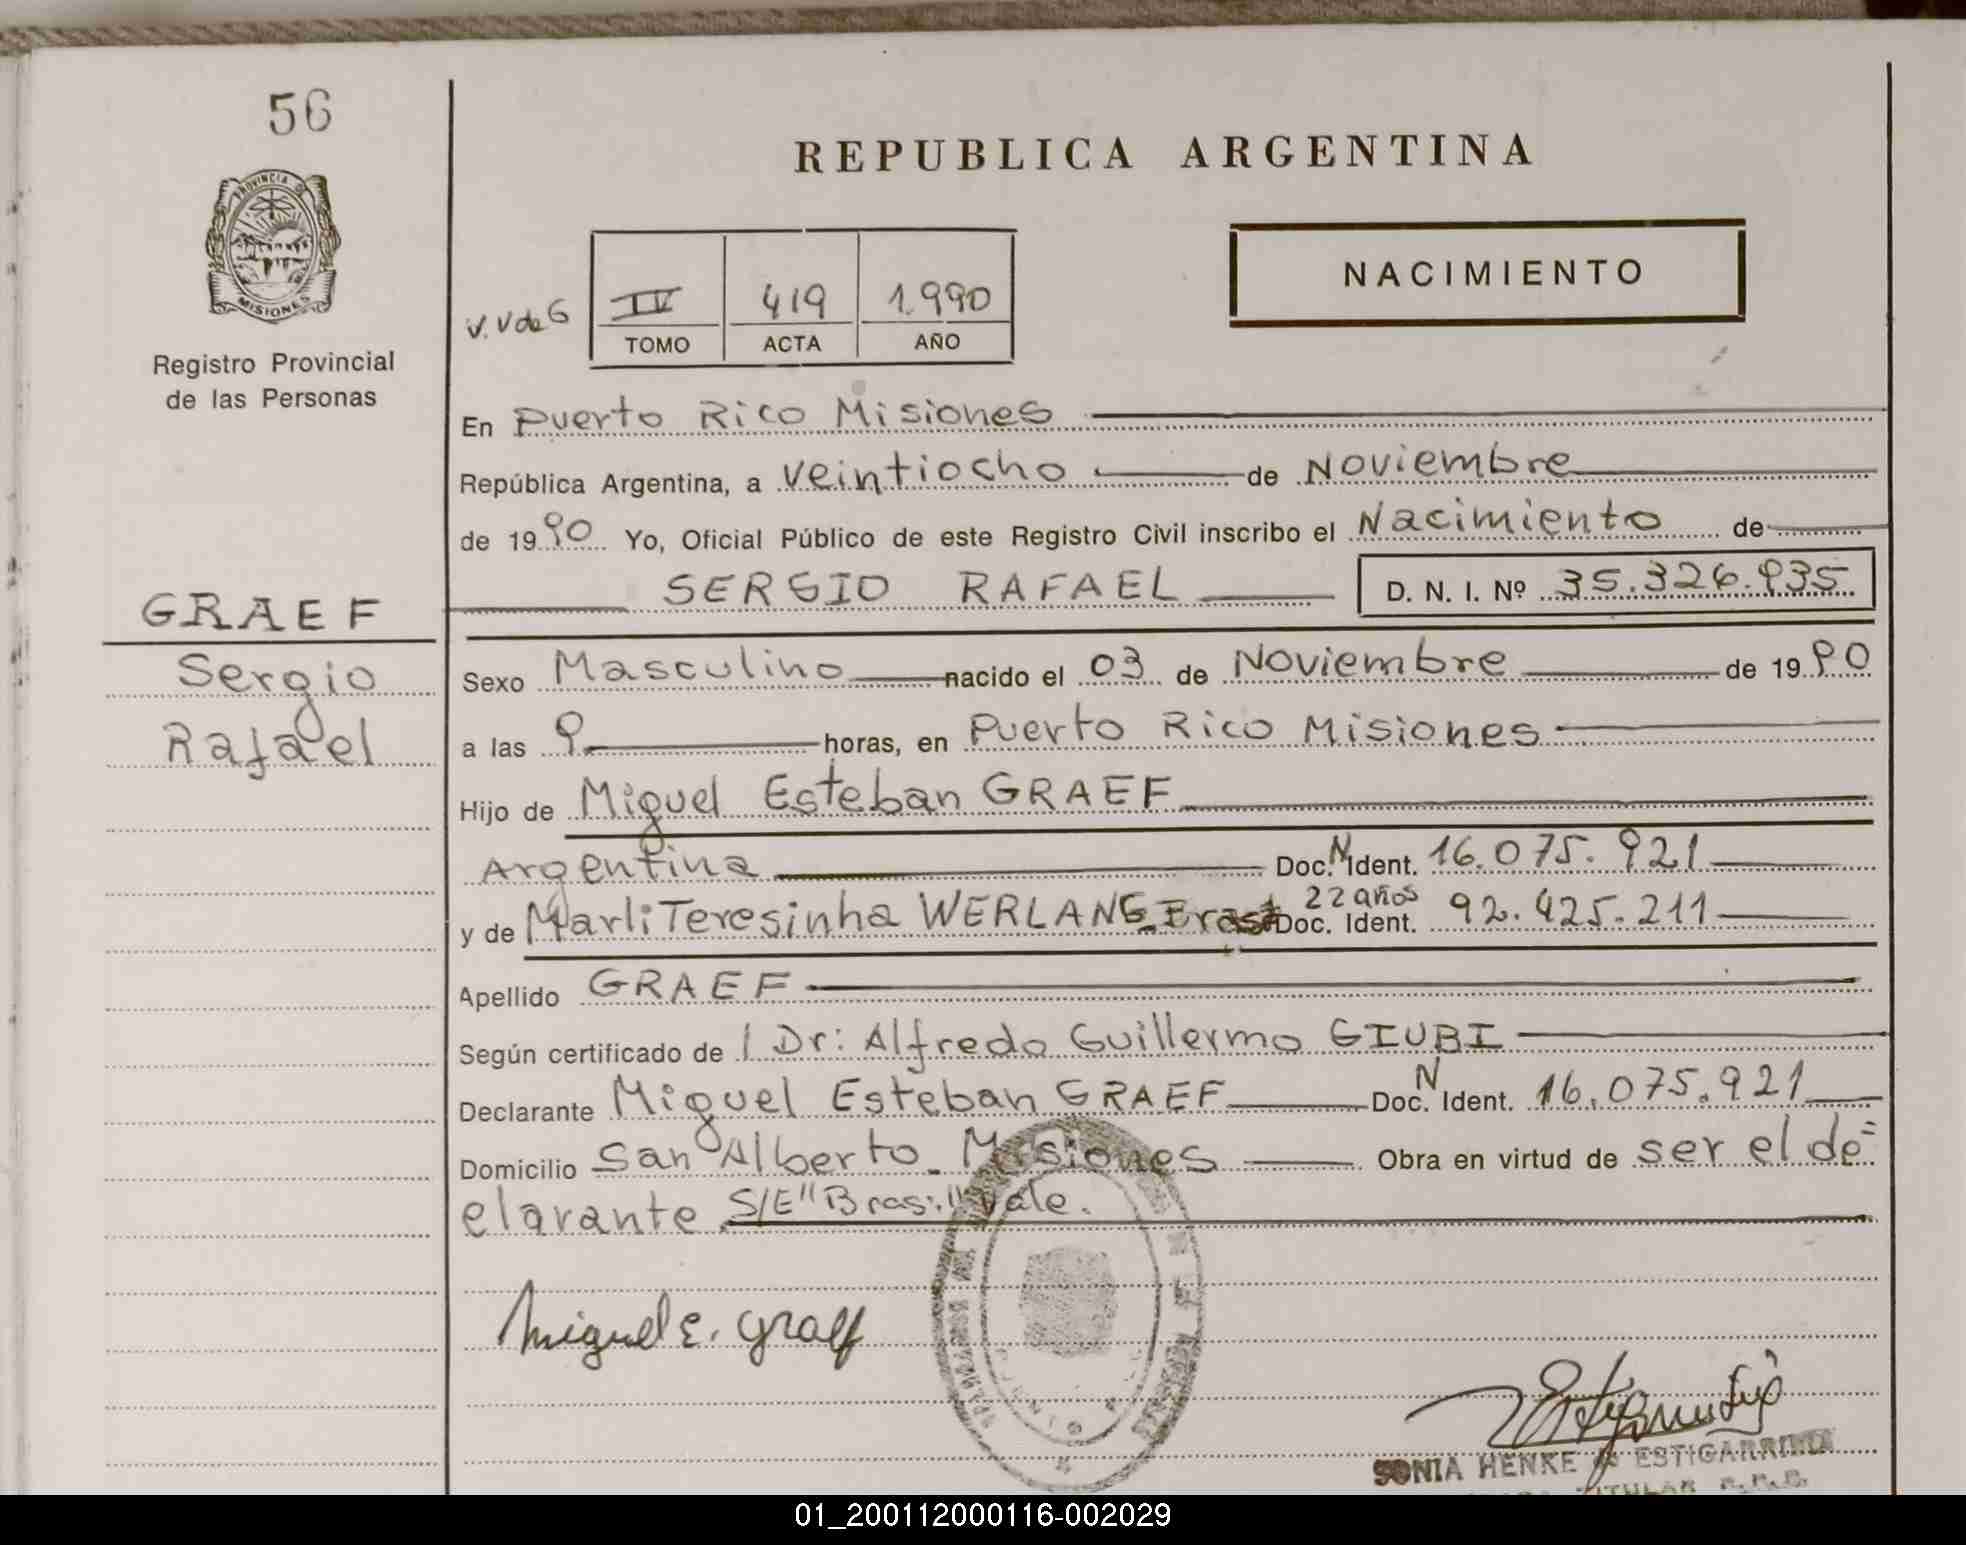 56
PROVINCIA DE
MISIONES
Registro Provincial
de las Personas
REPUBLICA ARGENTINA
NACIMIENTO
V. V de G
IV 419 1.990
TOMO ACTA AÑO
En Puerto Rico Misiones
República Argentina, a veintiocho de Noviembre
de 1990 Yo, Oficial Público de este Registro Civil inscribo el Nacimiento de
SERGIO RAFAEL D. N. I. Nº 35.326.935
GRAEF
Sergio
Rafael
Sexo Masculino nacido el 03 de Noviembre de 1990
a las 9 horas, en Puerto Rico Misiones
Hijo de Miguel Esteban GRAEF
Argentina Doc. N Ident. 16.075.921
y de Marli Teresinha WERLANG 22 años Doc. Ident. 92.425.211
Apellido GRAEF
Según certificado de / Dr: Alfredo Guillermo GIUBI
Declarante Miguel Esteban GRAEF Doc. N Ident. 16.075.921
Domicilio San Alberto Misiones Obra en virtud de ser el de=
clarante S/E "Brasil" Vale.
Miguel E. Graef
SONIA HENKE de ESTIGARRIBIA
TITULAR
01_200112000116-002029